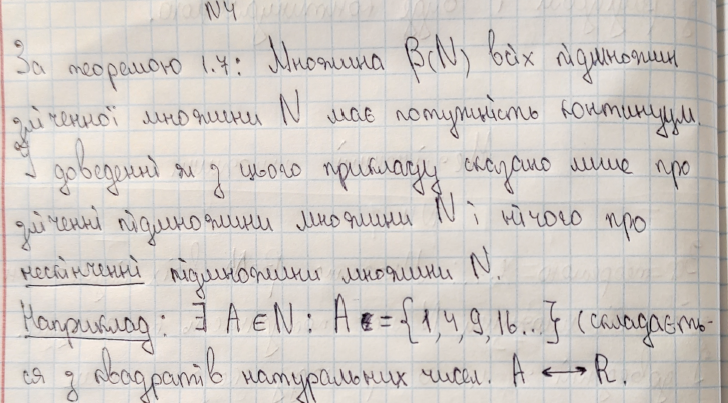 N4
За теоремою 1.7: Множина β(N) всіх підмножин
зліченної множини N має потужність континуум.
У доведенні ж з цього прикладу сказано лише про
зліченні підмножини множини N і нічого про
нескінченні підмножини множини N.
Наприклад: ∃ A ∈ N : A = {1,4,9,16...} (складаєть-
ся з квадратів натуральних чисел. A ↔ R.